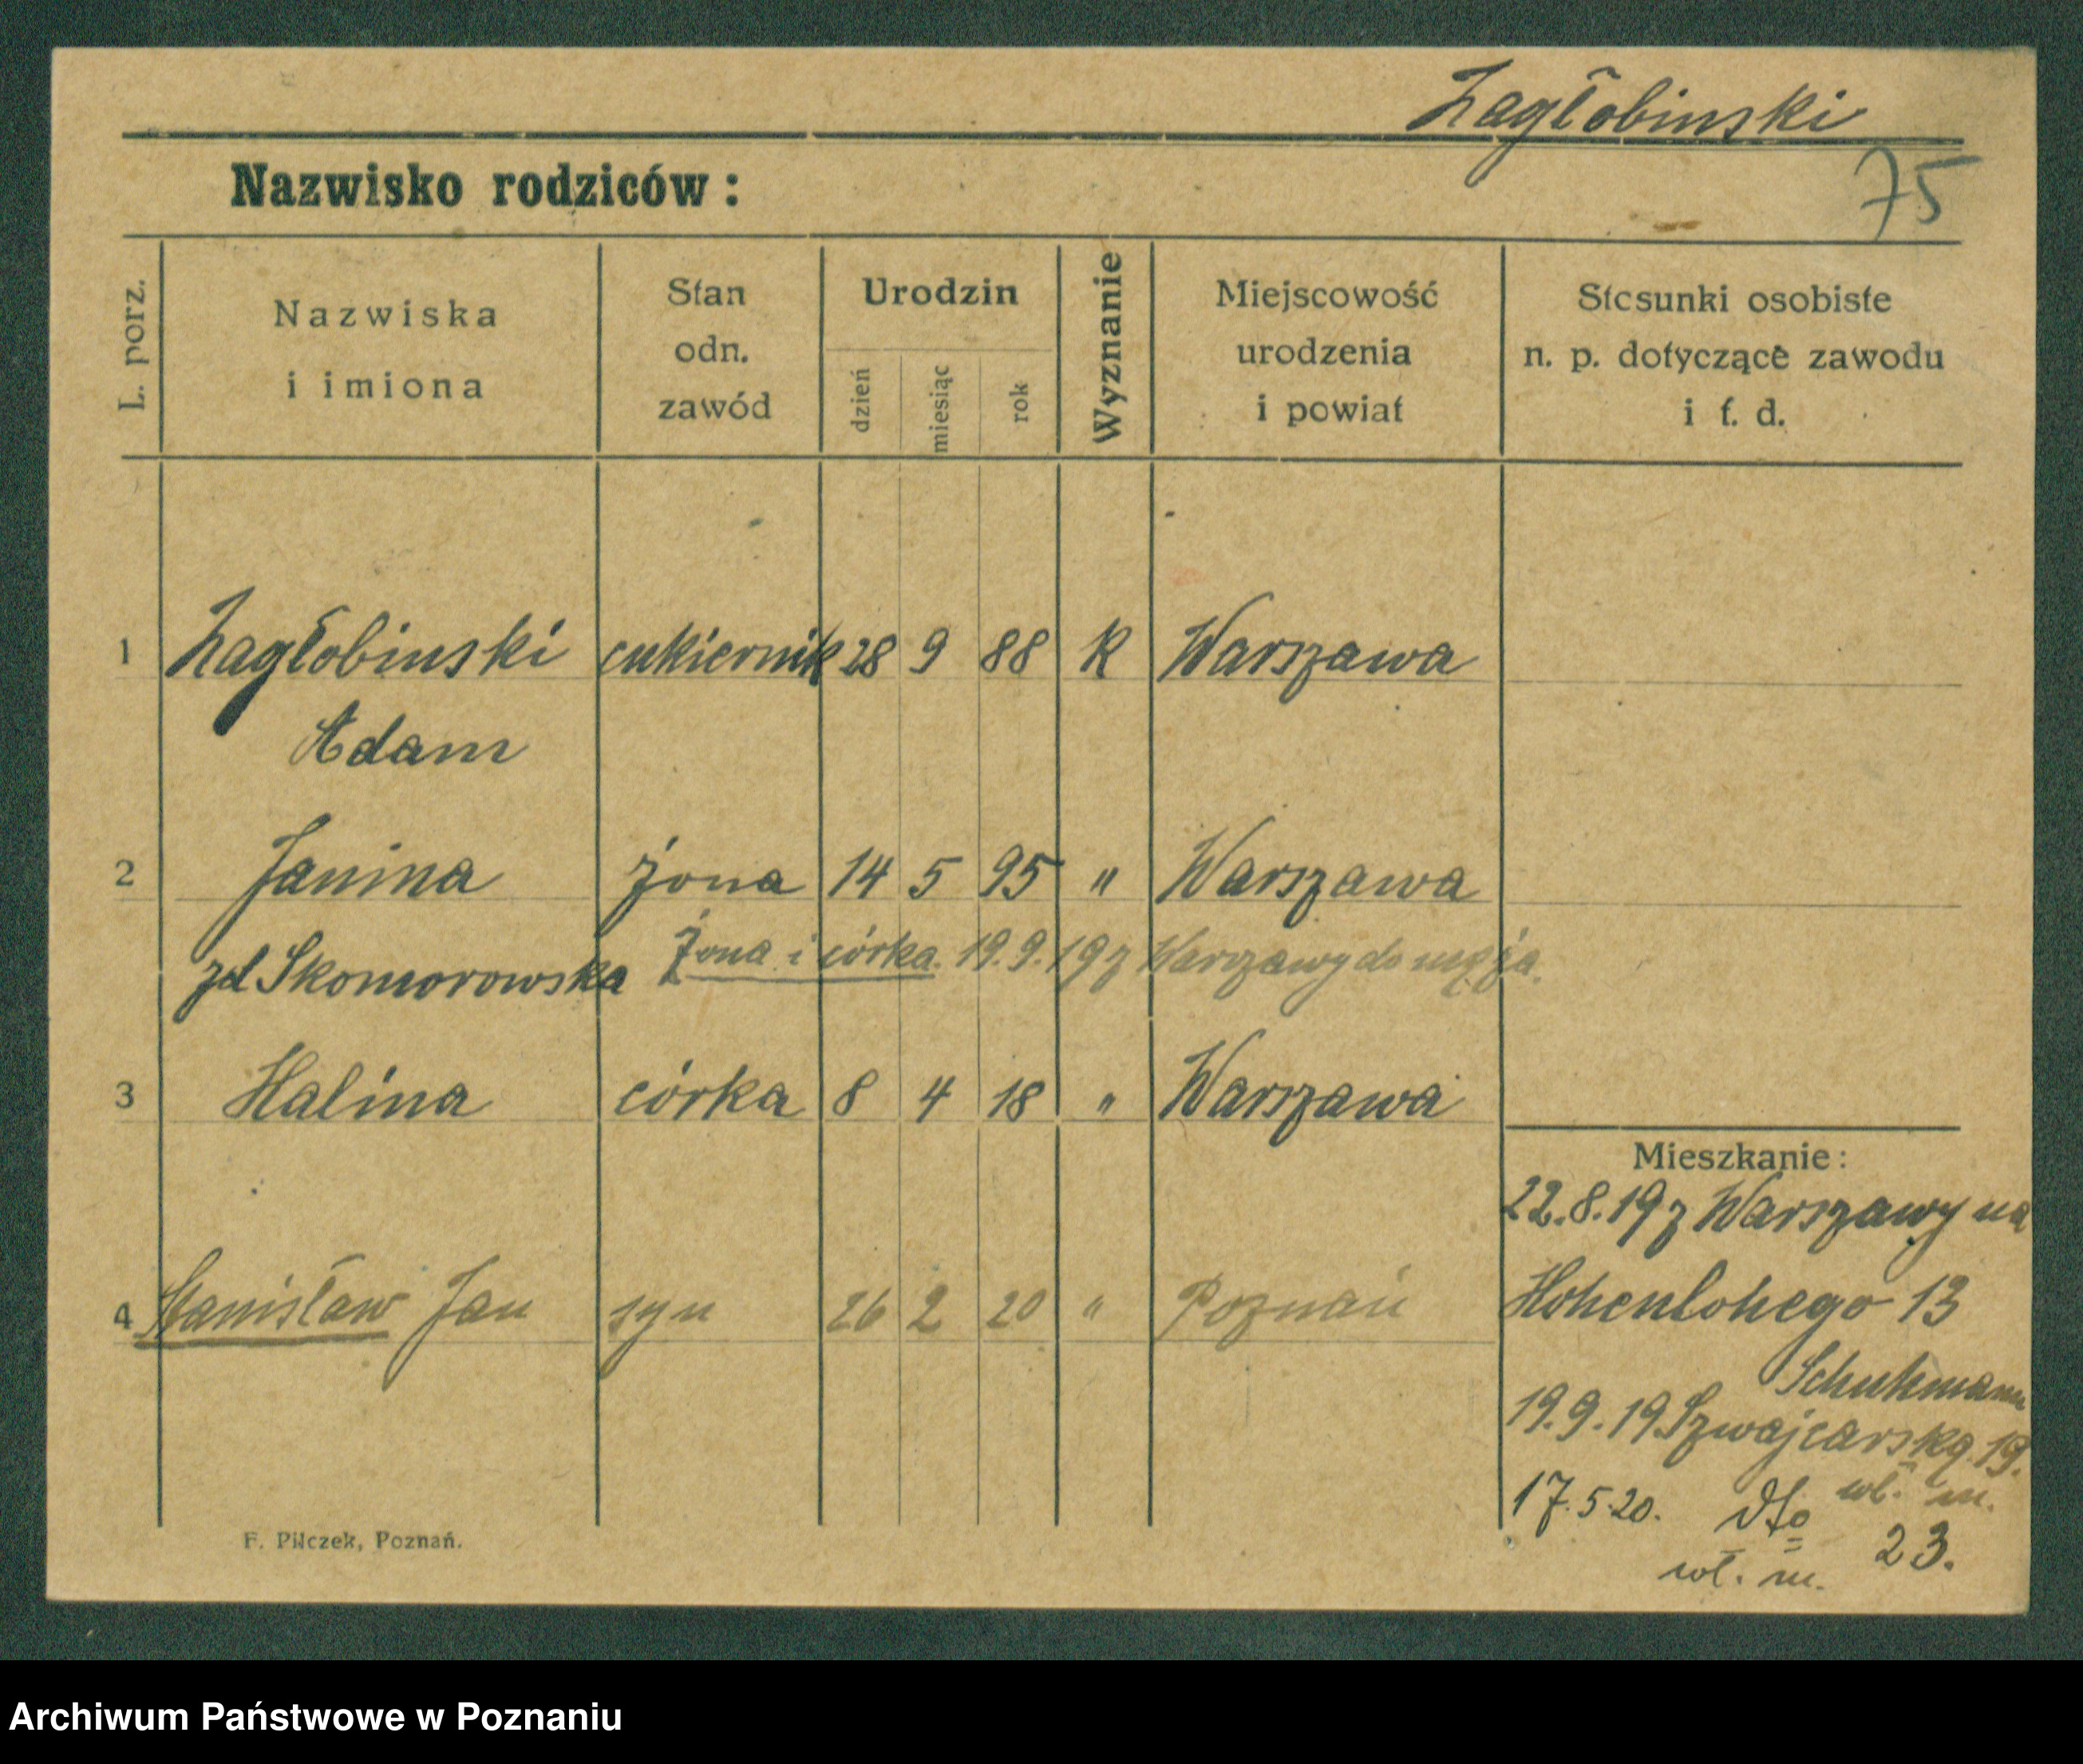 Zagłobinski
75
Nazwisko rodziców:
L. porz.
Nazwiska
i imiona
Stan
odn.
zawód
Urodzin
dzień
miesiąc
rok
Wyznanie
Miejscowość
urodzenia
i powiat
Stosunki osobiste
n. p. dotyczące zawodu
i t. d.
1 Zagłobinski cukiernik 28 9 88 K Warszawa
Adam
2 Janina żona 14 5 95 " Warszawa
zd Skomorowska Żona i córka. 19.9.19 z Warszawy do męża.
3 Halina córka 8 4 18 " Warszawa
Mieszkanie:
22.8.19 z Warszawy na
4 Stanisław Jan syn 26 2 20 " Poznań
Hohenlohego 13
Schuhmann
19.9.19 Szwajcarską 19.
wł. m.
17.5.20. dto 23.
wł. m.
F. Pilczek, Poznań.
Archiwum Państwowe w Poznaniu